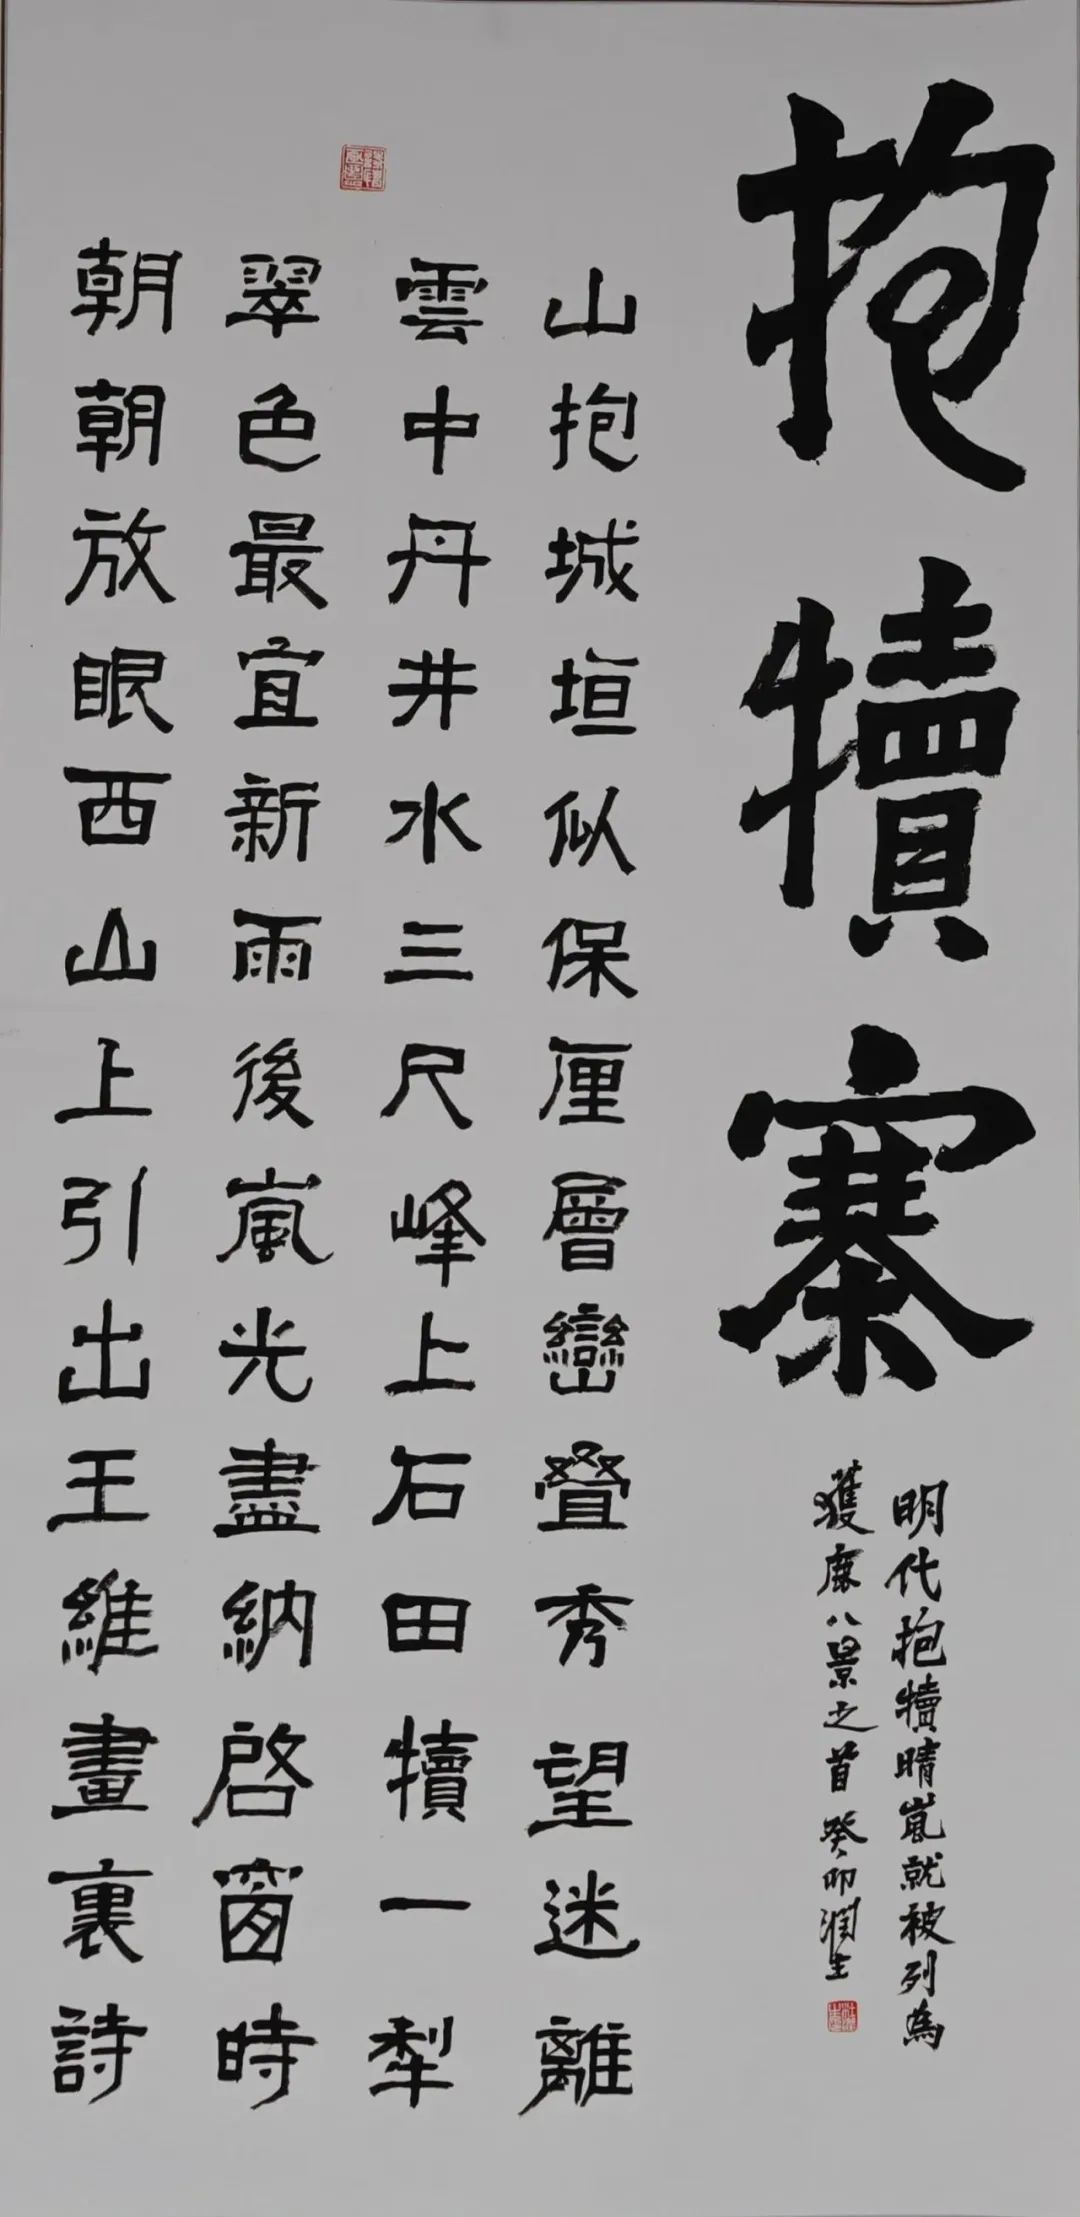 抱犢寨
明代抱犢晴嵐就被列為
獲鹿八景之首癸卯潤生
山抱城垣似保厘層巒疊秀望迷離
雲中丹井水三尺峰上石田犢一犁
翠色最宜新雨後嵐光盡納啓窗時
朝朝放眼西山上引出王維畫裏詩